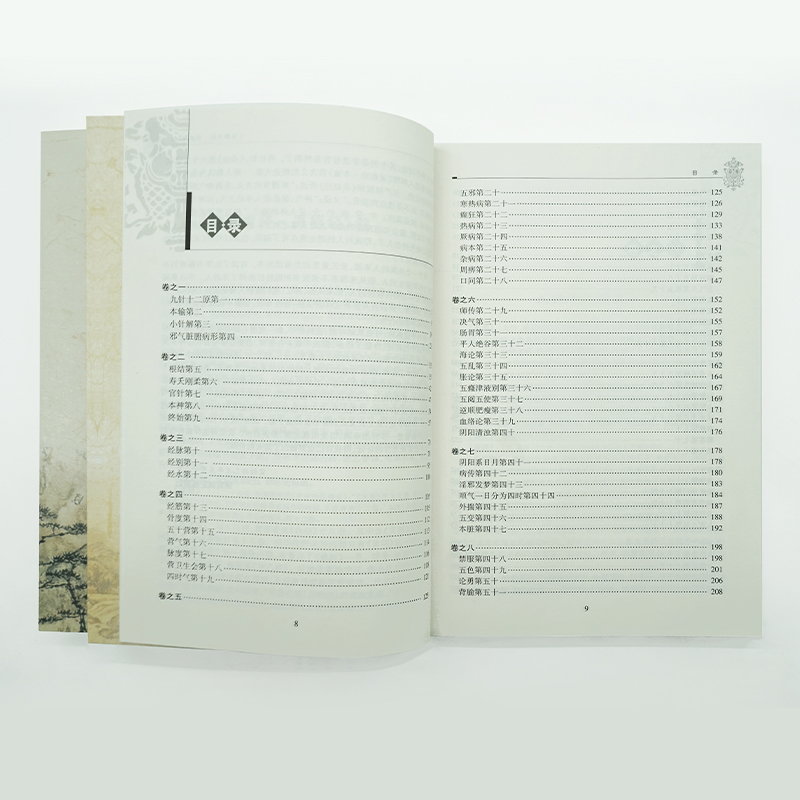 目录
卷之一
九针十二原第一
本输第二
小针解第三
邪气脏腑病形第四
卷之二
根结第五
寿夭刚柔第六
官针第七
本神第八
终始第九
卷之三
经脉第十
经别第十一
经水第十二
卷之四
经筋第十三
骨度第十四
五十营第十五
营气第十六
脉度第十七
营卫生会第十八
四时气第十九
卷之五
8
目 录
五邪第二十 125
寒热病第二十 126
癫狂第二十二 129
热病第二十三 133
厥病第二十四 138
病本第二十五 141
杂病第二十六 142
周痹第二十七 145
口问第二十八 147
卷之六 152
师传第二十九 152
决气第三十 155
肠胃第三十 157
平人绝谷第三十二 158
海论第三十三 159
五乱第三十四 162
胀论第三十五 164
五癃津液别第三十六 167
五阅五使第三十七 169
逆顺肥瘦第三十八 171
血络论第三十九 174
阴阳清浊第四十 176
卷之七 178
阴阳系日月第四十一 178
病传第四十二 180
淫邪发梦第四十三 182
顺气一日分为四时第四十四 184
外揣第四十五 187
五变第四十六 188
本脏第四十七 192
卷之八 198
禁服第四十八 198
五色第四十九 201
论勇第五十 206
背腧第五十一 208
9